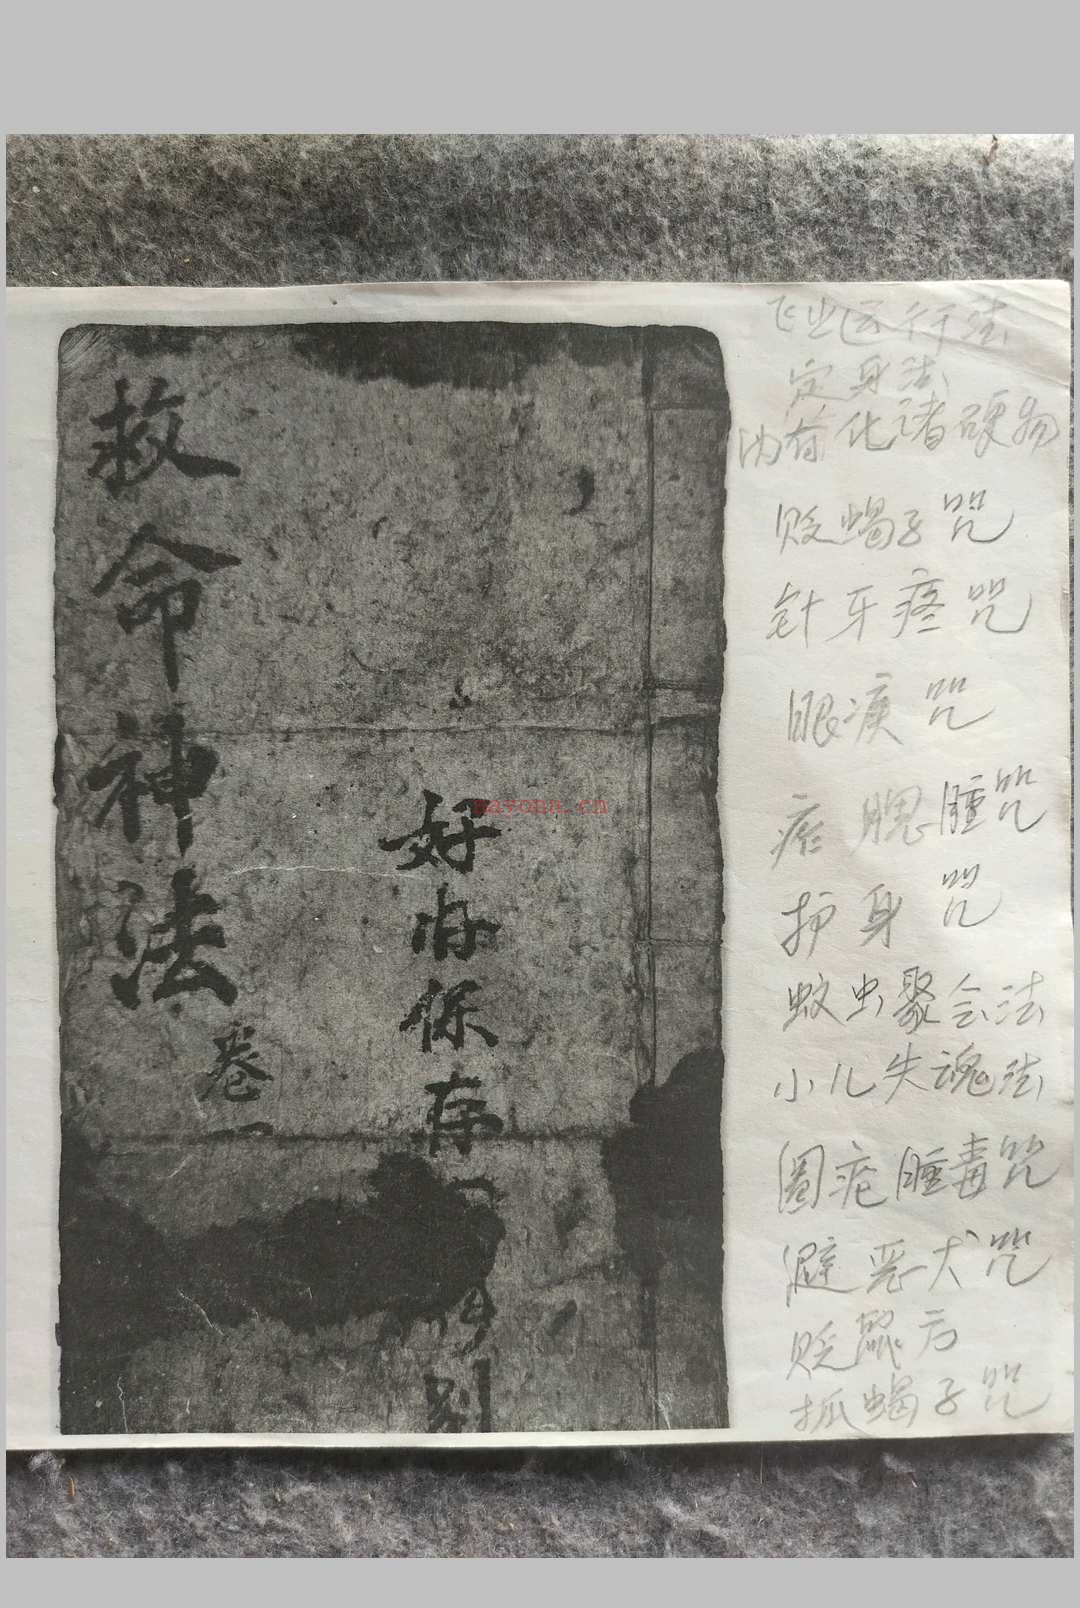 救命神法
卷一
好好保存
别
nayona.cn
飞也运行法
定身法
内荐化诸硬物
贬蝎子咒
针牙疼咒
眼痍咒
疮腮腫咒
护身咒
蚊虫聚会法
小儿失魂法
圈疮腫毒咒
避恶犬咒
贬鼠方
抓蝎子咒